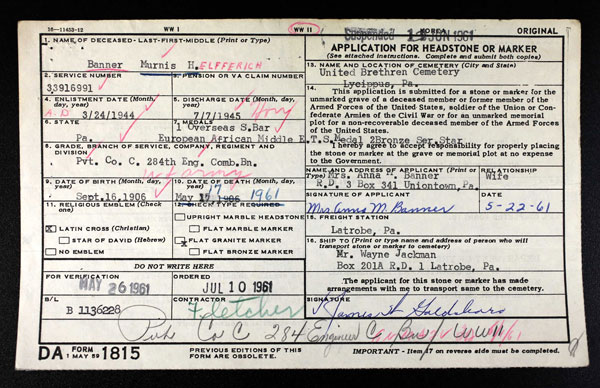 16-11453-12 WW I WW II KOREA ORIGINAL
Suspended 1 JUN 1961
1. NAME OF DECEASED - LAST-FIRST-MIDDLE (Print or Type)
Banner Murnis H. ELFFERICH
2. SERVICE NUMBER
33916991
3. PENSION OR VA CLAIM NUMBER
4. ENLISTMENT DATE (Month, day, year)
A.D 3/24/1944
5. DISCHARGE DATE (Month, day, year)
7/7/1945 Hon
6. STATE
Pa.
7. MEDALS
1 Overseas S.Bar
European African Middle E.T.S.Medal 2Bronze Ser.Star
8. GRADE, BRANCH OF SERVICE, COMPANY, REGIMENT AND DIVISION
Pvt. Co. C 284th Eng. Comb.Bn.
army
9. DATE OF BIRTH (Month, day, year)
Sept.16,1906
10. DATE OF DEATH (Month, day, year)
May 17 1906 1961
11. RELIGIOUS EMBLEM (Check one)
X LATIN CROSS (Christian)
STAR OF DAVID (Hebrew)
NO EMBLEM
12. CHECK TYPE REQUIRED
UPRIGHT MARBLE HEADSTONE
FLAT MARBLE MARKER
X FLAT GRANITE MARKER
FLAT BRONZE MARKER
DO NOT WRITE HERE
FOR VERIFICATION
MAY 26 1961
ORDERED
JUL 10 1961
B/L
B 1136228
CONTRACTOR
Fletcher
APPLICATION FOR HEADSTONE OR MARKER
(See attached instructions. Complete and submit both copies)
13. NAME AND LOCATION OF CEMETERY (City and State)
United Brethren Cemetery
Lycippus, Pa.
14.
This application is submitted for a stone or marker for the unmarked grave of a deceased member or former member of the Armed Forces of the United States, soldier of the Union or Confederate Armies of the Civil War or for an unmarked memorial plot for a non-recoverable deceased member of the Armed Forces of the United States.
I hereby agree to accept responsibility for properly placing the stone or marker at the grave or memorial plot at no expense to the Government.
NAME AND ADDRESS OF APPLICANT (Print or Type)
Mrs. Anna M. Banner
R.D. 3 Box 341 Uniontown,Pa.
RELATIONSHIP
Wife
SIGNATURE OF APPLICANT
Mrs Anna M. Banner
DATE
5-22-61
15. FREIGHT STATION
Latrobe, Pa.
16. SHIP TO (Print or type name and address of person who will transport stone or marker to cemetery)
Mr. Wayne Jackman
Box 201A R.D. 1 Latrobe, Pa.
The applicant for this stone or marker has made arrangements with me to transport same to the cemetery.
SIGNATURE
Co C 284 Engineer C Bn WWII
DA FORM 1 MAY 59 1815
PREVIOUS EDITIONS OF THIS FORM ARE OBSOLETE.
IMPORTANT - Item 17 on reverse side must be completed.